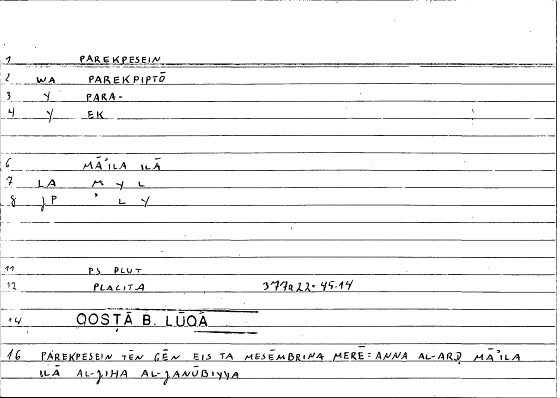 1 PAREKPESEIN
2 WA PAREKPIPTŌ
3 Y PARA-
4 Y EK
6 MĀʾILA ILĀ
7 LA M Y L
8 JP ʾ L Y
11 PS PLUT
12 PLACITA 377a22-45.14
14 QOSṬĀ B. LŪQĀ
16 PAREKPESEIN TĒN GĒN EIS TA MESĒMBRINA MERĒ = ANNA AL-ARḌ MĀʾILA
ILĀ AL-JIHA AL-JANŪBIYYA